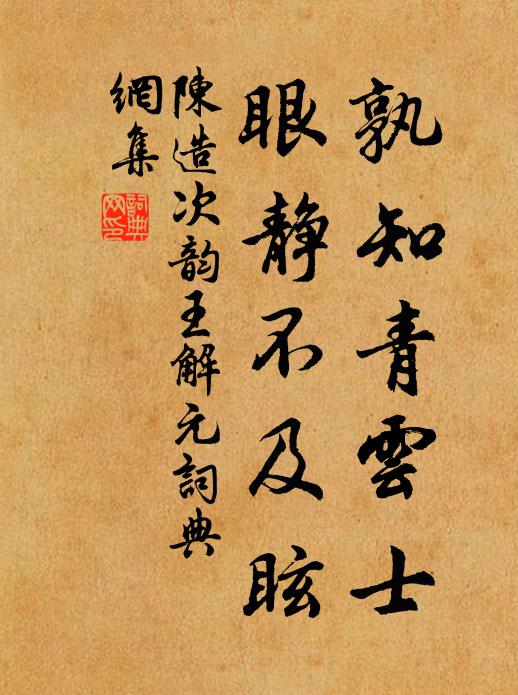 孰知青雲士
眼静不及眩
陳造次韵王解元詞典
網集
詞典網印